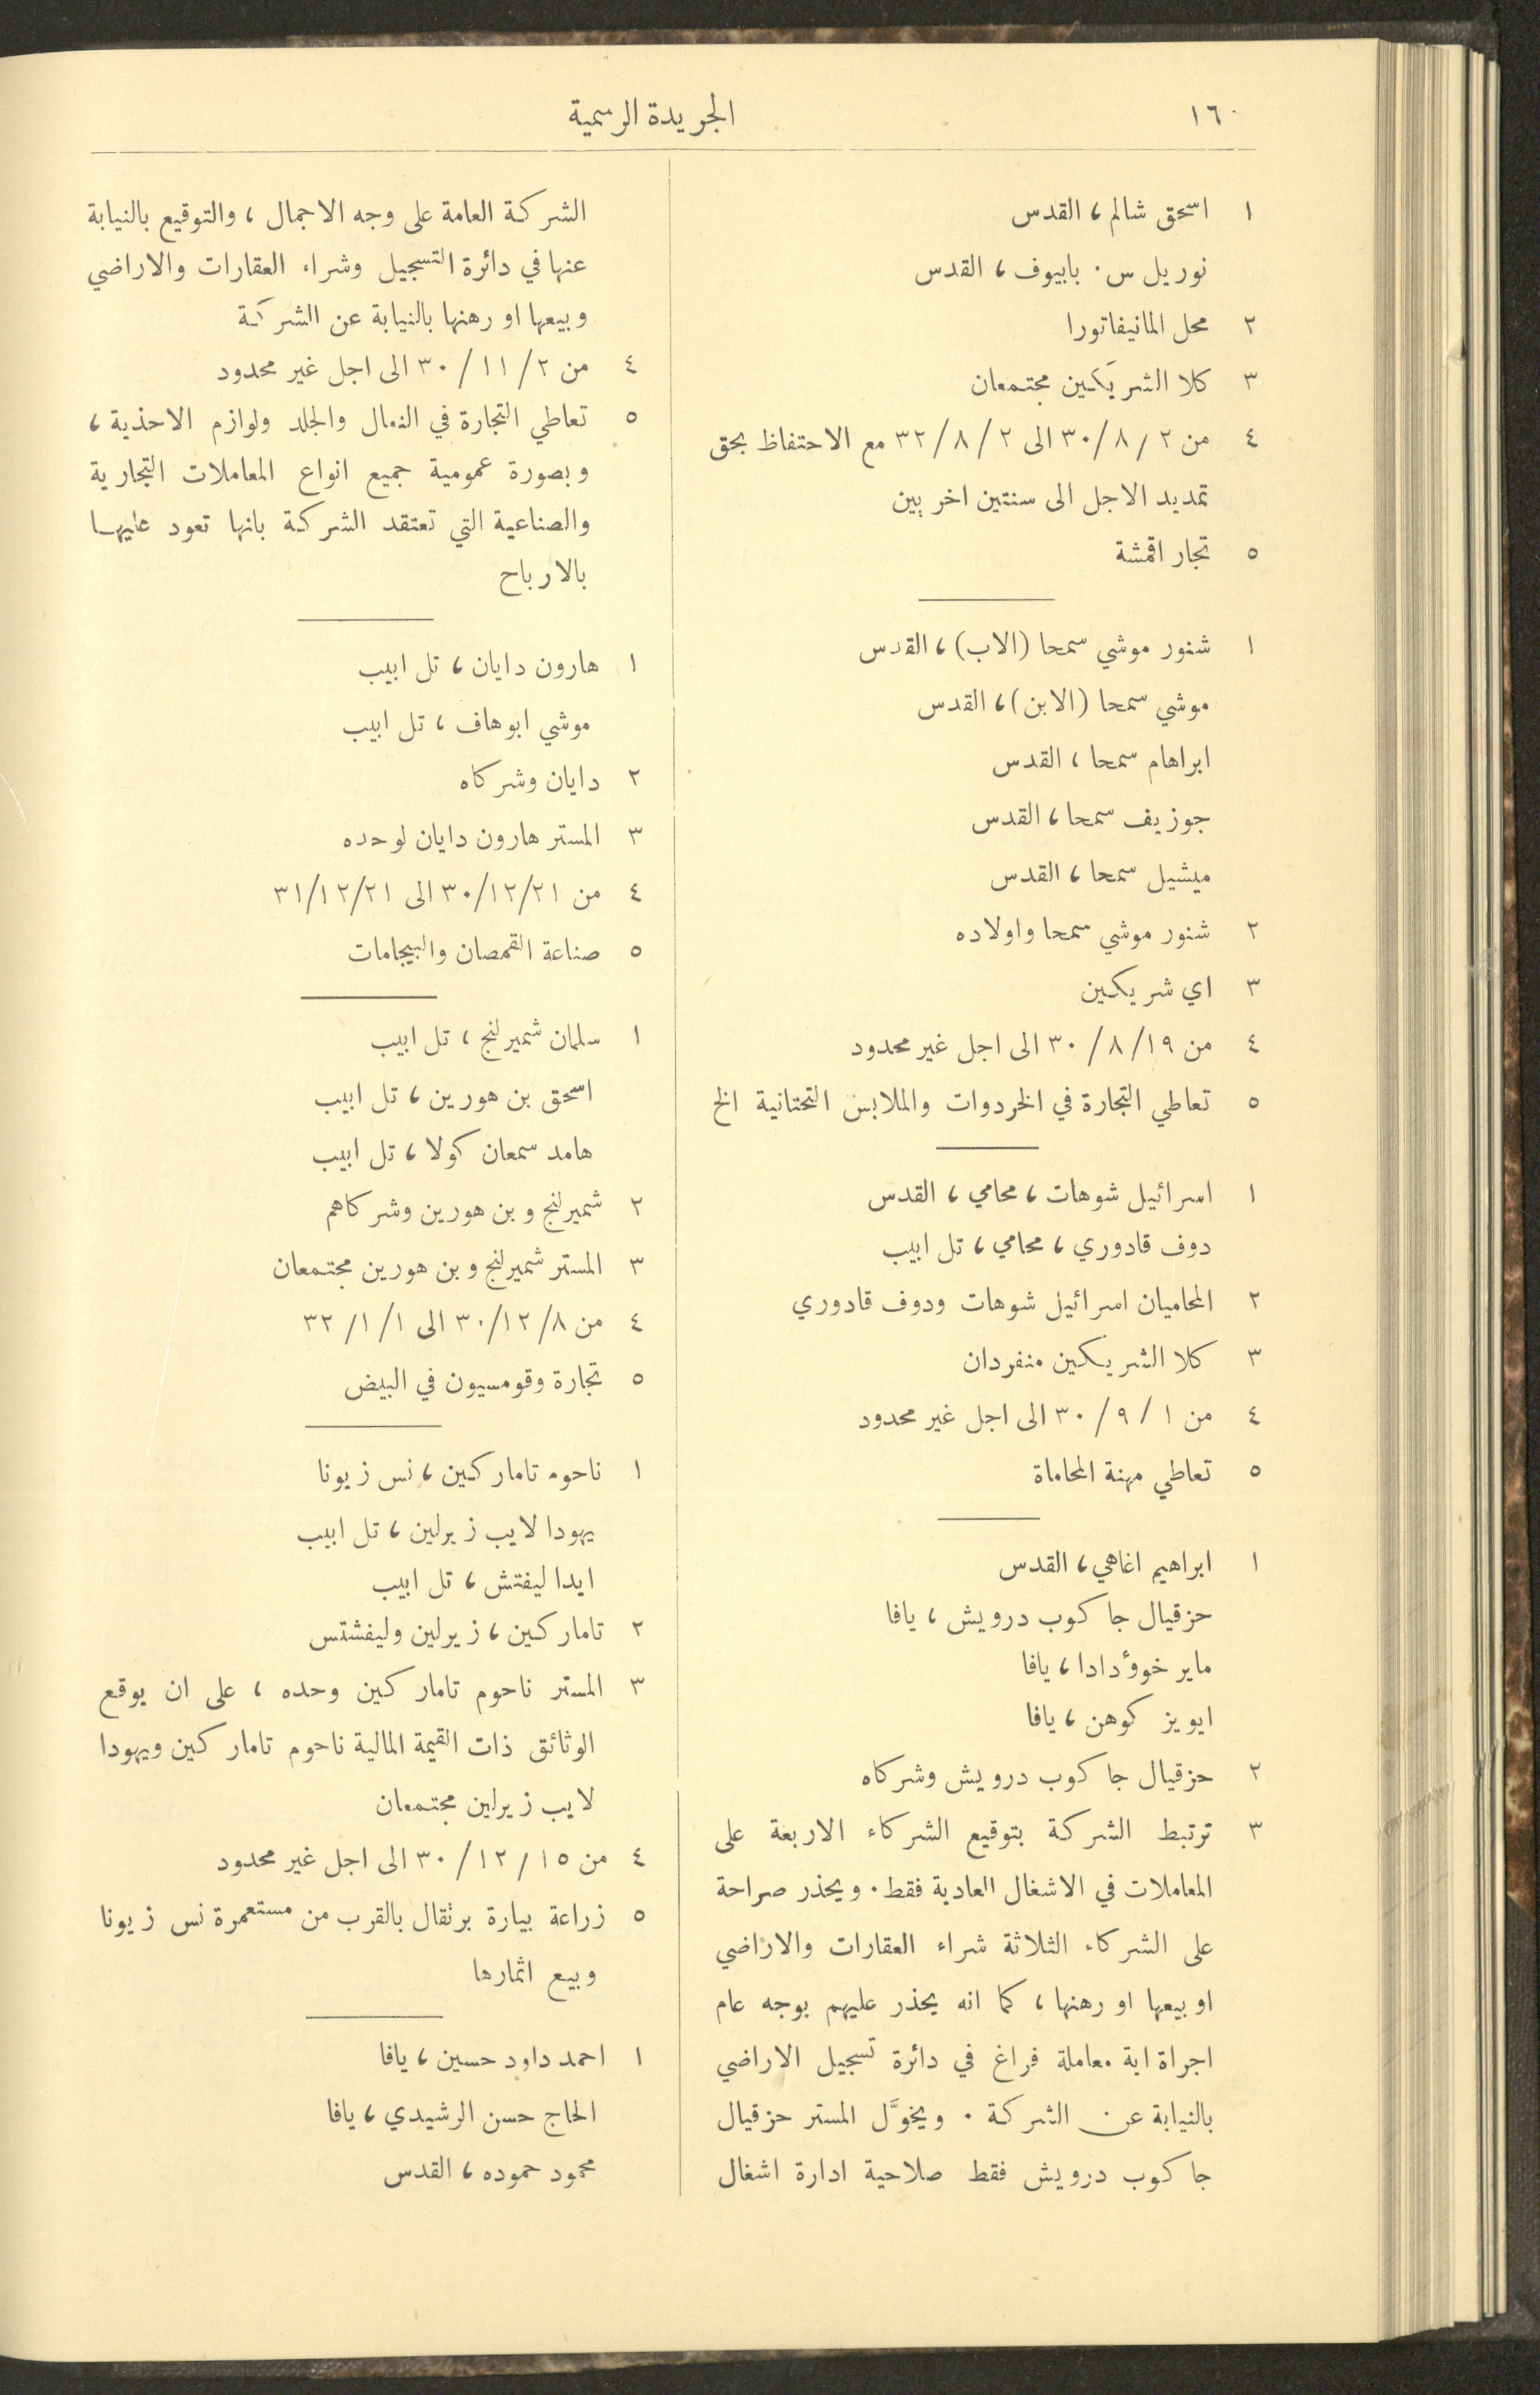 ١٦٠
الجريدة الرسمية
١ اسحق شالم، القدس
نوريل س. بابيوف، القدس
٢ محل المانيفاتورا
٣ كلا الشريكين مجتمعان
٤ من ٢/ ٨/ ٣٠ الى ٢/ ٨/ ٣٢ مع الاحتفاظ بحق
تمديد الاجل الى سنتين اخريين
٥ تجار اقمشة
١ شنور موشي سمحا (الاب)، القدس
موشي سمحا (الابن)، القدس
ابراهام سمحا، القدس
جوزيف سمحا، القدس
ميشيل سمحا، القدس
٢ شنور موشي سمحا واولاده
٣ اي شريكين
٤ من ١٩/ ٨/ ٣٠ الى اجل غير محدود
٥ تعاطي التجارة في الخردوات والملابس التحتانية الخ
١ اسرائيل شوهات، محامي، القدس
دوف قادوري، محامي، تل ابيب
٢ المحاميان اسرائيل شوهات ودوف قادوري
٣ كلا الشريكين منفردان
٤ من ١ / ٩/ ٣٠ الى اجل غير محدود
٥ تعاطي مهنة المحاماة
١ ابراهيم اغاهي، القدس
حزقيال جاكوب درويش، يافا
ماير خوؤدادا، يافا
ايويز كوهن، يافا
٢ حزقيال جاكوب درويش وشركاه
٣ ترتبط الشركة بتوقيع الشركاء الاربعة على
المعاملات في الاشغال العادية فقط. ويحذر صراحة
على الشركاء الثلاثة شراء العقارات والاراضي
او بيعها او رهنها، كما انه يحذر عليهم بوجه عام
اجراة اية معاملة فراغ في دائرة تسجيل الاراضي
بالنيابة عن الشركة. ويخوَّل المستر حزقيال
جاكوب درويش فقط صلاحية ادارة اشغال
الشركة العامة على وجه الاجمال، والتوقيع بالنيابة
عنها في دائرة التسجيل وشراء العقارات والاراضي
وبيعها او رهنها بالنيابة عن الشركة
٤ من ٢/ ١١/ ٣٠ الى اجل غير محدود
٥ تعاطي التجارة في النعال والجلد ولوازم الاحذية،
وبصورة عمومية جميع انواع المعاملات التجارية
والصناعية التي تعتقد الشركة بانها تعود عليها
بالارباح
١ هارون دايان، تل ابيب
موشي ابوهاف، تل ابيب
٢ دايان وشركاه
٣ المستر هارون دايان لوحده
٤ من ٣٠/١٢/٢١ الى ٣١/١٢/٢١
٥ صناعة القمصان والبيجامات
١ سلمان شميرلنج، تل ابيب
اسحق بن هورين، تل ابيب
هامد سمعان كولا، تل ابيب
٢ شميرلنج وبن هورين وشركاهم
٣ المستر شميرلنج وبن هورين مجتمعان
٤ من ٣٠/١٢/٨ الى ١/ ١/ ٣٢
٥ تجارة وقومسيون في البيض
١ ناحوم تاماركين، نس زيونا
يهودا لايب زيرلين، تل ابيب
ايدا ليفتش، تل ابيب
٢ تاماركين، زيرلين وليفشتس
٣ المستر ناحوم تاماركين وحده، على ان يوقع
الوثائق ذات القيمة المالية ناحوم تاماركين ويهودا
لايب زيرلين مجتمعان
٤ من ١٥/ ١٢/ ٣٠ الى اجل غير محدود
٥ زراعة بيارة برتقال بالقرب من مستعمرة نس زيونا
وبيع اثمارها
١ احمد داود حسين، يافا
الحاج حسن الرشيدي، يافا
محمود حموده، القدس